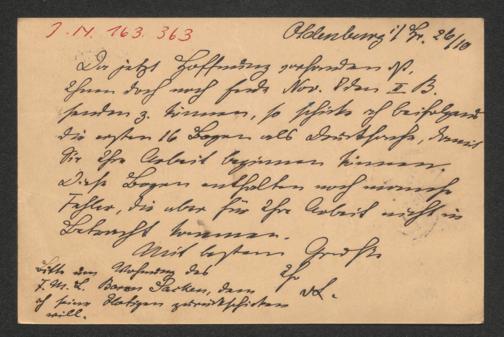 I. N. 163.363
Oldenburg i/Gr. 26/10
Da jetzt Hoffnung vorhanden ist,
Ihnen doch noch Ende Nov. den II. B.
senden z. können, so schicke ich beifolgend
die ersten 16 Bogen als Drucksache, damit
Sie Ihre Arbeit beginnen können.
Diese Bogen enthalten noch manche
Fehler, die aber für Ihre Arbeit nicht in
Betracht kommen.
Mit bestem Gruße
Ihr
vL.
Bitte um Wohnung des
F. M. L. Baron Sacken, dem
ich seine Notizen zurückschicken
will.